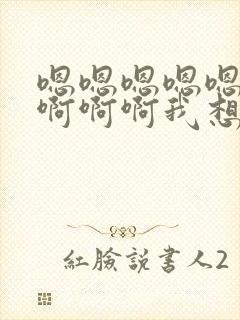 嗯嗯嗯嗯嗯
啊啊啊我想
紅臉説書人2